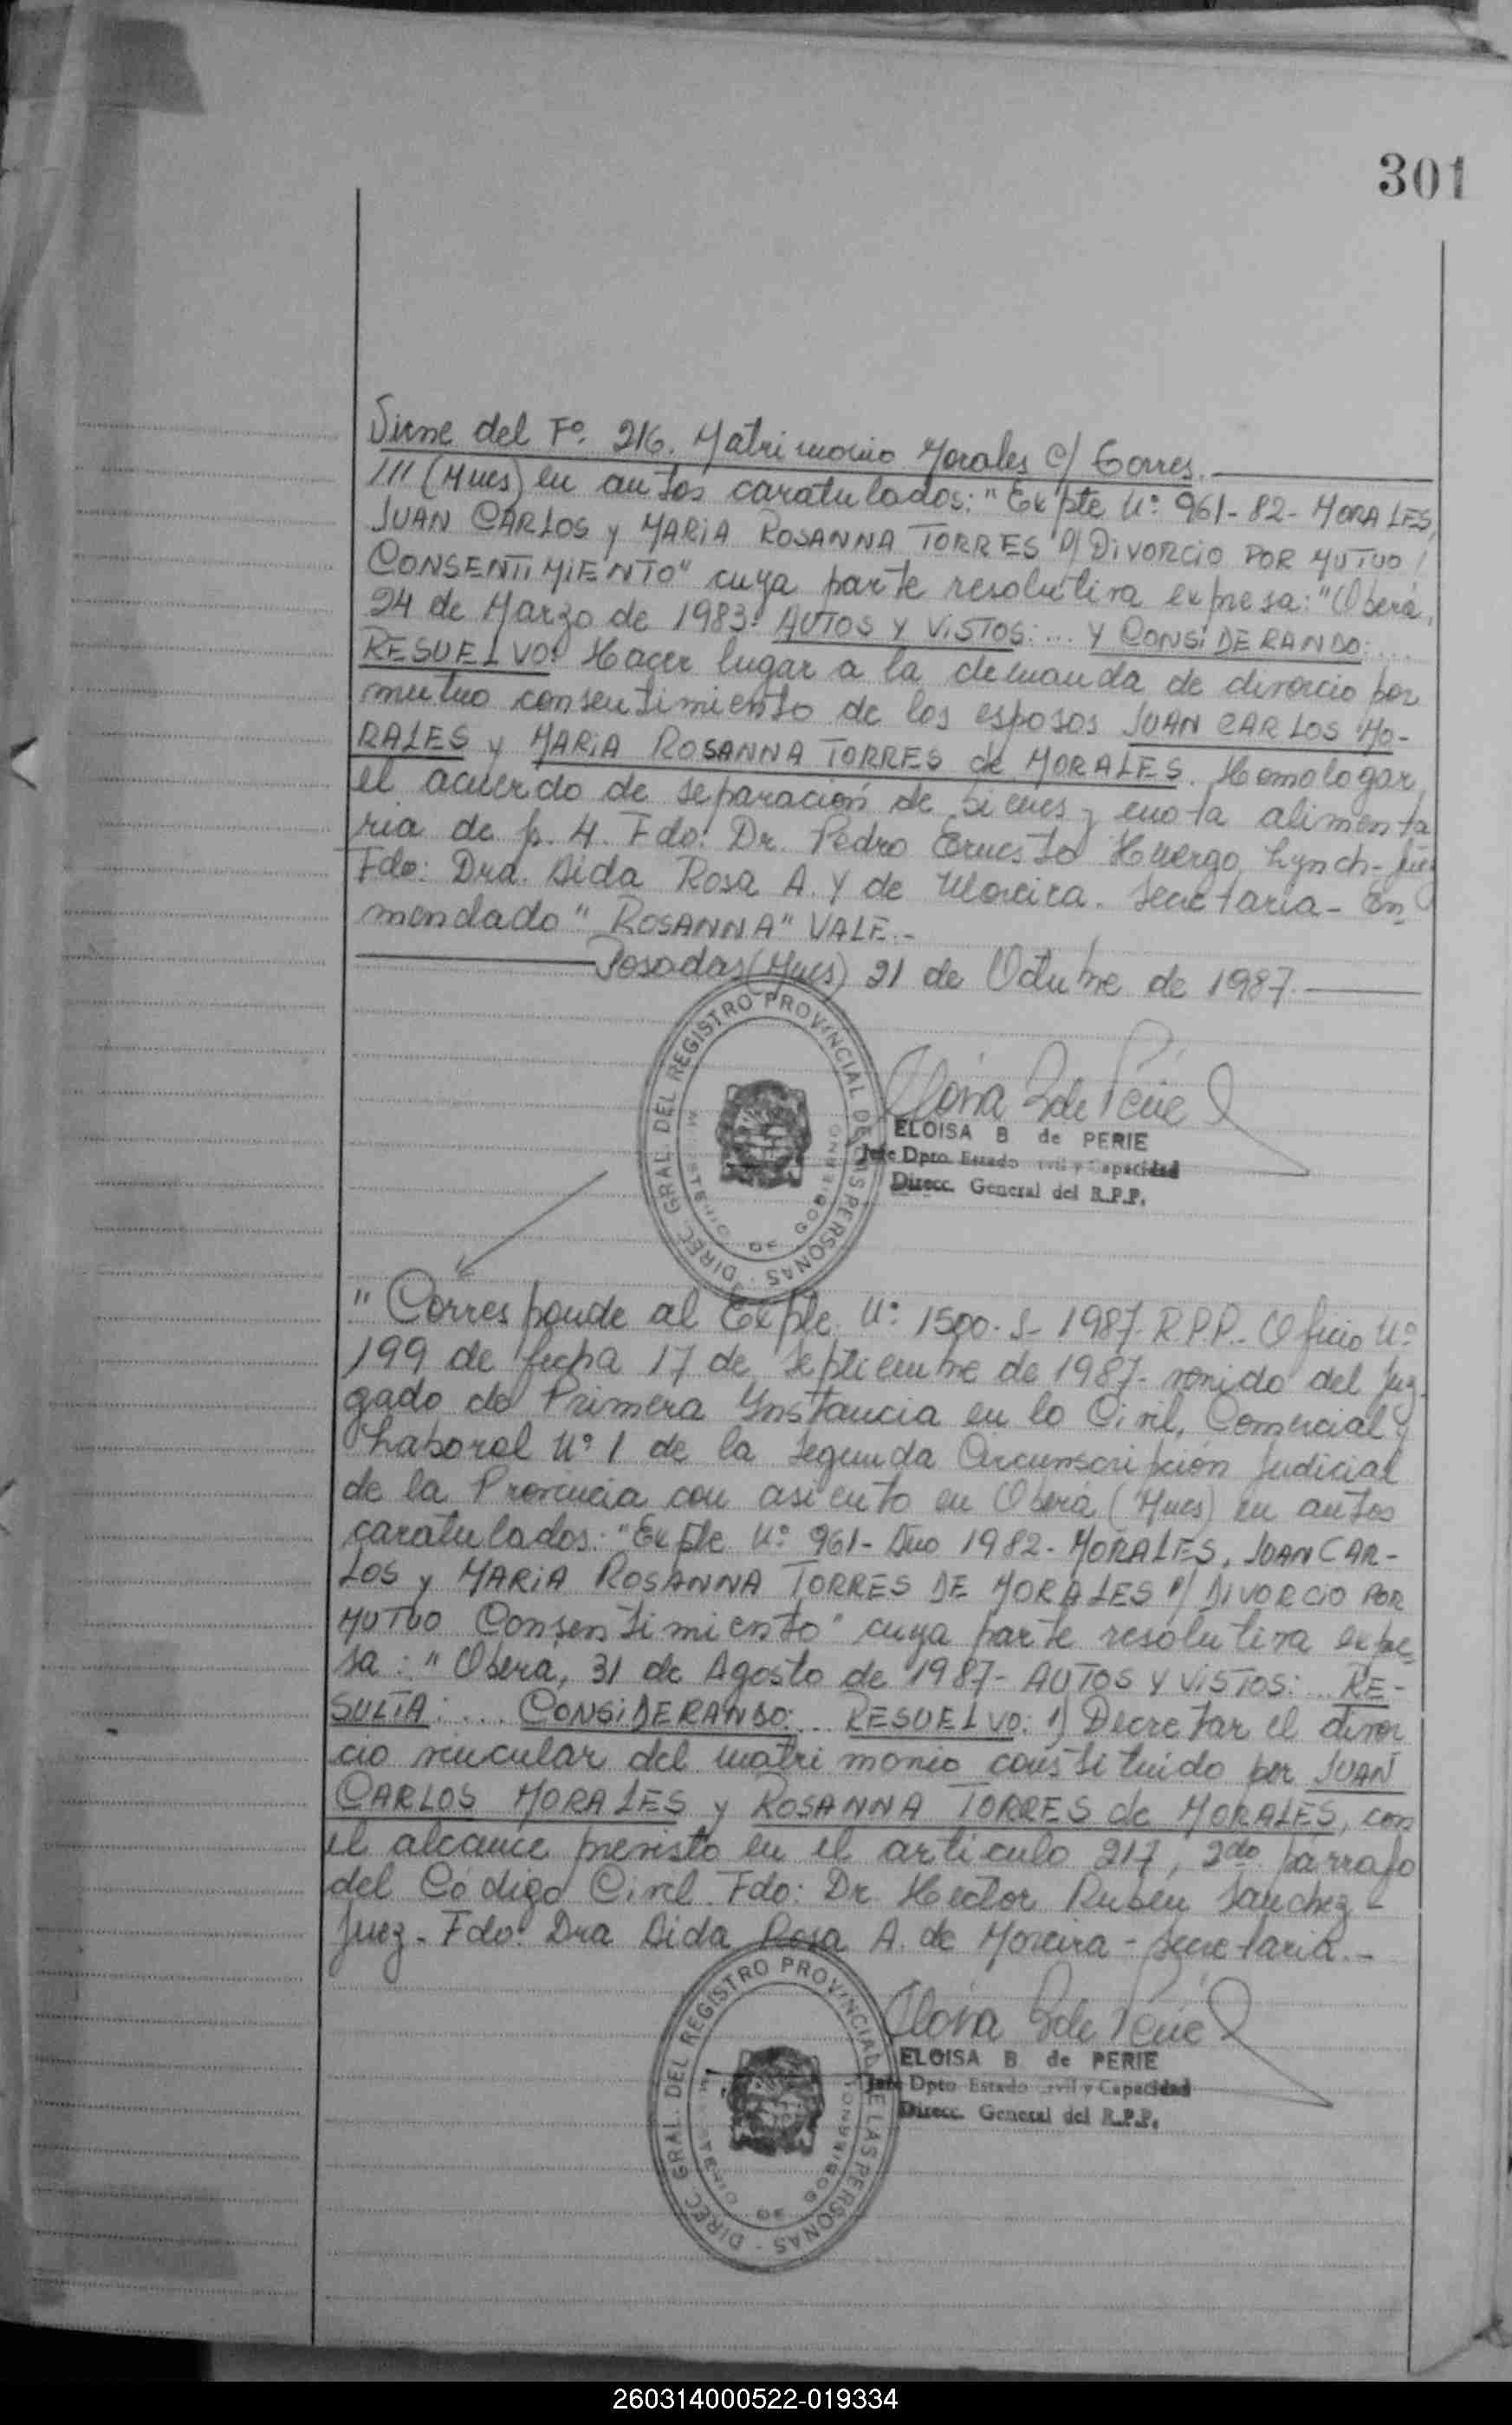 301
Viene del Fº. 216. Matrimonio Morales c/ Torres.
/// (Mnes) en autos caratulados: "Expte Nº 961-82- MORALES,
JUAN CARLOS y MARIA ROSANNA TORRES P/ DIVORCIO POR MUTUO
CONSENTIMIENTO" cuya parte resolutiva expresa: "Oberá,
24 de Marzo de 1983: AUTOS Y VISTOS: ... Y CONSIDERANDO: ...
RESUELVO: Hacer lugar a la demanda de divorcio por
mutuo consentimiento de los esposos JUAN CARLOS MO-
RALES y MARIA ROSANNA TORRES de MORALES. Homologar
el acuerdo de separación de bienes y cuota alimenta
ria de p. 4. Fdo: Dr. Pedro Ernesto Huergo Lynch- Juez
Fdo: Dra. Aida Rosa A. Y de Moreira. Secretaria- En-
mendado "ROSANNA" VALE.-
Posadas (Mnes) 21 de Octubre de 1987.
DIREC. GRAL. DEL REGISTRO PROVINCIAL DE LAS PERSONAS
MINISTERIO DE GOBIERNO
Eloisa B de Perié
ELOISA B de PERIE
Jefe Dpto. Estado Civil y Capacidad
Direcc. General del R.P.P.
"Corresponde al Expte. Nº 1500-S-1987-R.P.P.- Oficio Nº
199 de fecha 17 de Septiembre de 1987- venido del Juz-
gado de Primera Instancia en lo Civil, Comercial y
Laboral Nº 1 de la Segunda Circunscripción Judicial
de la Provincia con asiento en Oberá (Mnes) en autos
caratulados: "Expte Nº 961- Año 1982- MORALES, JUAN CAR-
LOS y MARIA ROSANNA TORRES DE MORALES P/ DIVORCIO POR
MUTUO Consentimiento" cuya parte resolutiva expre-
sa: "Oberá, 31 de Agosto de 1987- AUTOS Y VISTOS: ... RE-
SULTA: ... CONSIDERANDO: ... RESUELVO: 1) Decretar el divor
cio vincular del matrimonio constituido por JUAN
CARLOS MORALES y ROSANNA TORRES de MORALES, con
el alcance previsto en el artículo 217, 2do párrafo
del Código Civil. Fdo: Dr. Hector Ruben Sanchez-
Juez- Fdo: Dra Aida Rosa A. de Moreira- Secretaria.-
DIREC. GRAL. DEL REGISTRO PROVINCIAL DE LAS PERSONAS
MINISTERIO DE GOBIERNO
Eloisa B de Perié
ELOISA B de PERIE
Jefe Dpto Estado Civil y Capacidad
Direcc. General del R.P.P.
260314000522-019334